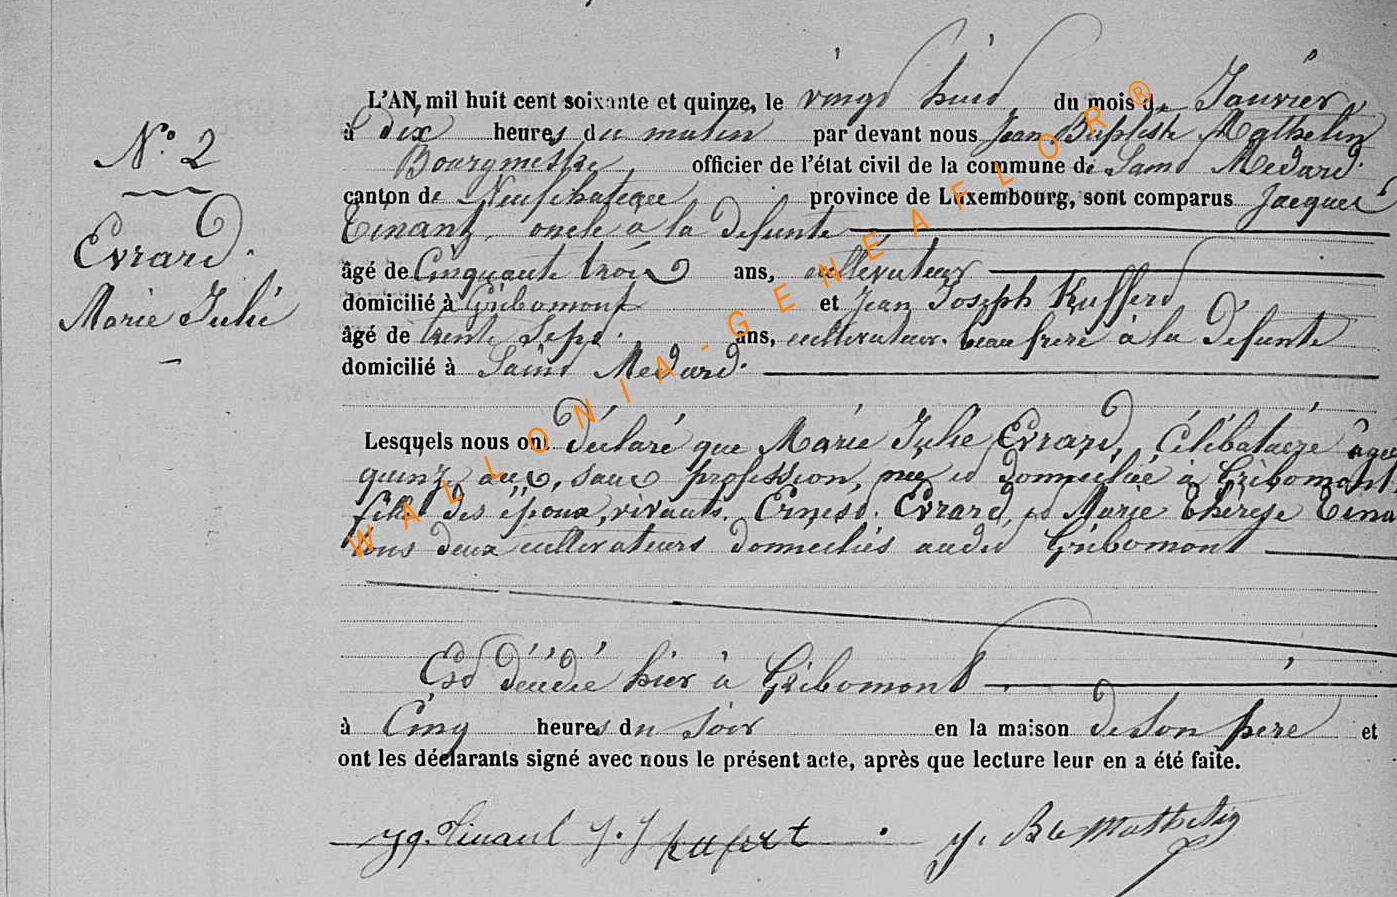 N.° 2
Evrard
Marie Julie
L'AN mil huit cent soixante et quinze, le vingt huit du mois de Janvier
à dix heures du matin par devant nous Jean Baptiste Mathelin
Bourgmestre officier de l'état civil de la commune de Saint Medard
canton de Neufchateau province de Luxembourg, sont comparus Jacques
Tinant, oncle à la défunte
âgé de Cinquante trois ans, cultivateur
domicilié à Gribomont et Jean Joseph
âgé de trente sept ans, cultivateur. beau frère à la défunte
domicilié à Saint Medard.
Lesquels nous ont déclaré que Marie Julie Evrard, Célibataire âgée
quinze ans, sans profession, née et domiciliée à Gribomont,
fille des époux, vivants. Ernest Evrard, et Marie Thérèse Tina
tous deux cultivateurs domiciliés audit Gribomont
Est décédée hier à Gribomont
à Cinq heures du soir en la maison de son père et
ont les déclarants signé avec nous le présent acte, après que lecture leur en a été faite.
Jq. Tinant J. J. J. Bte Mathelin
WALLONIA-GENEAFLOR®